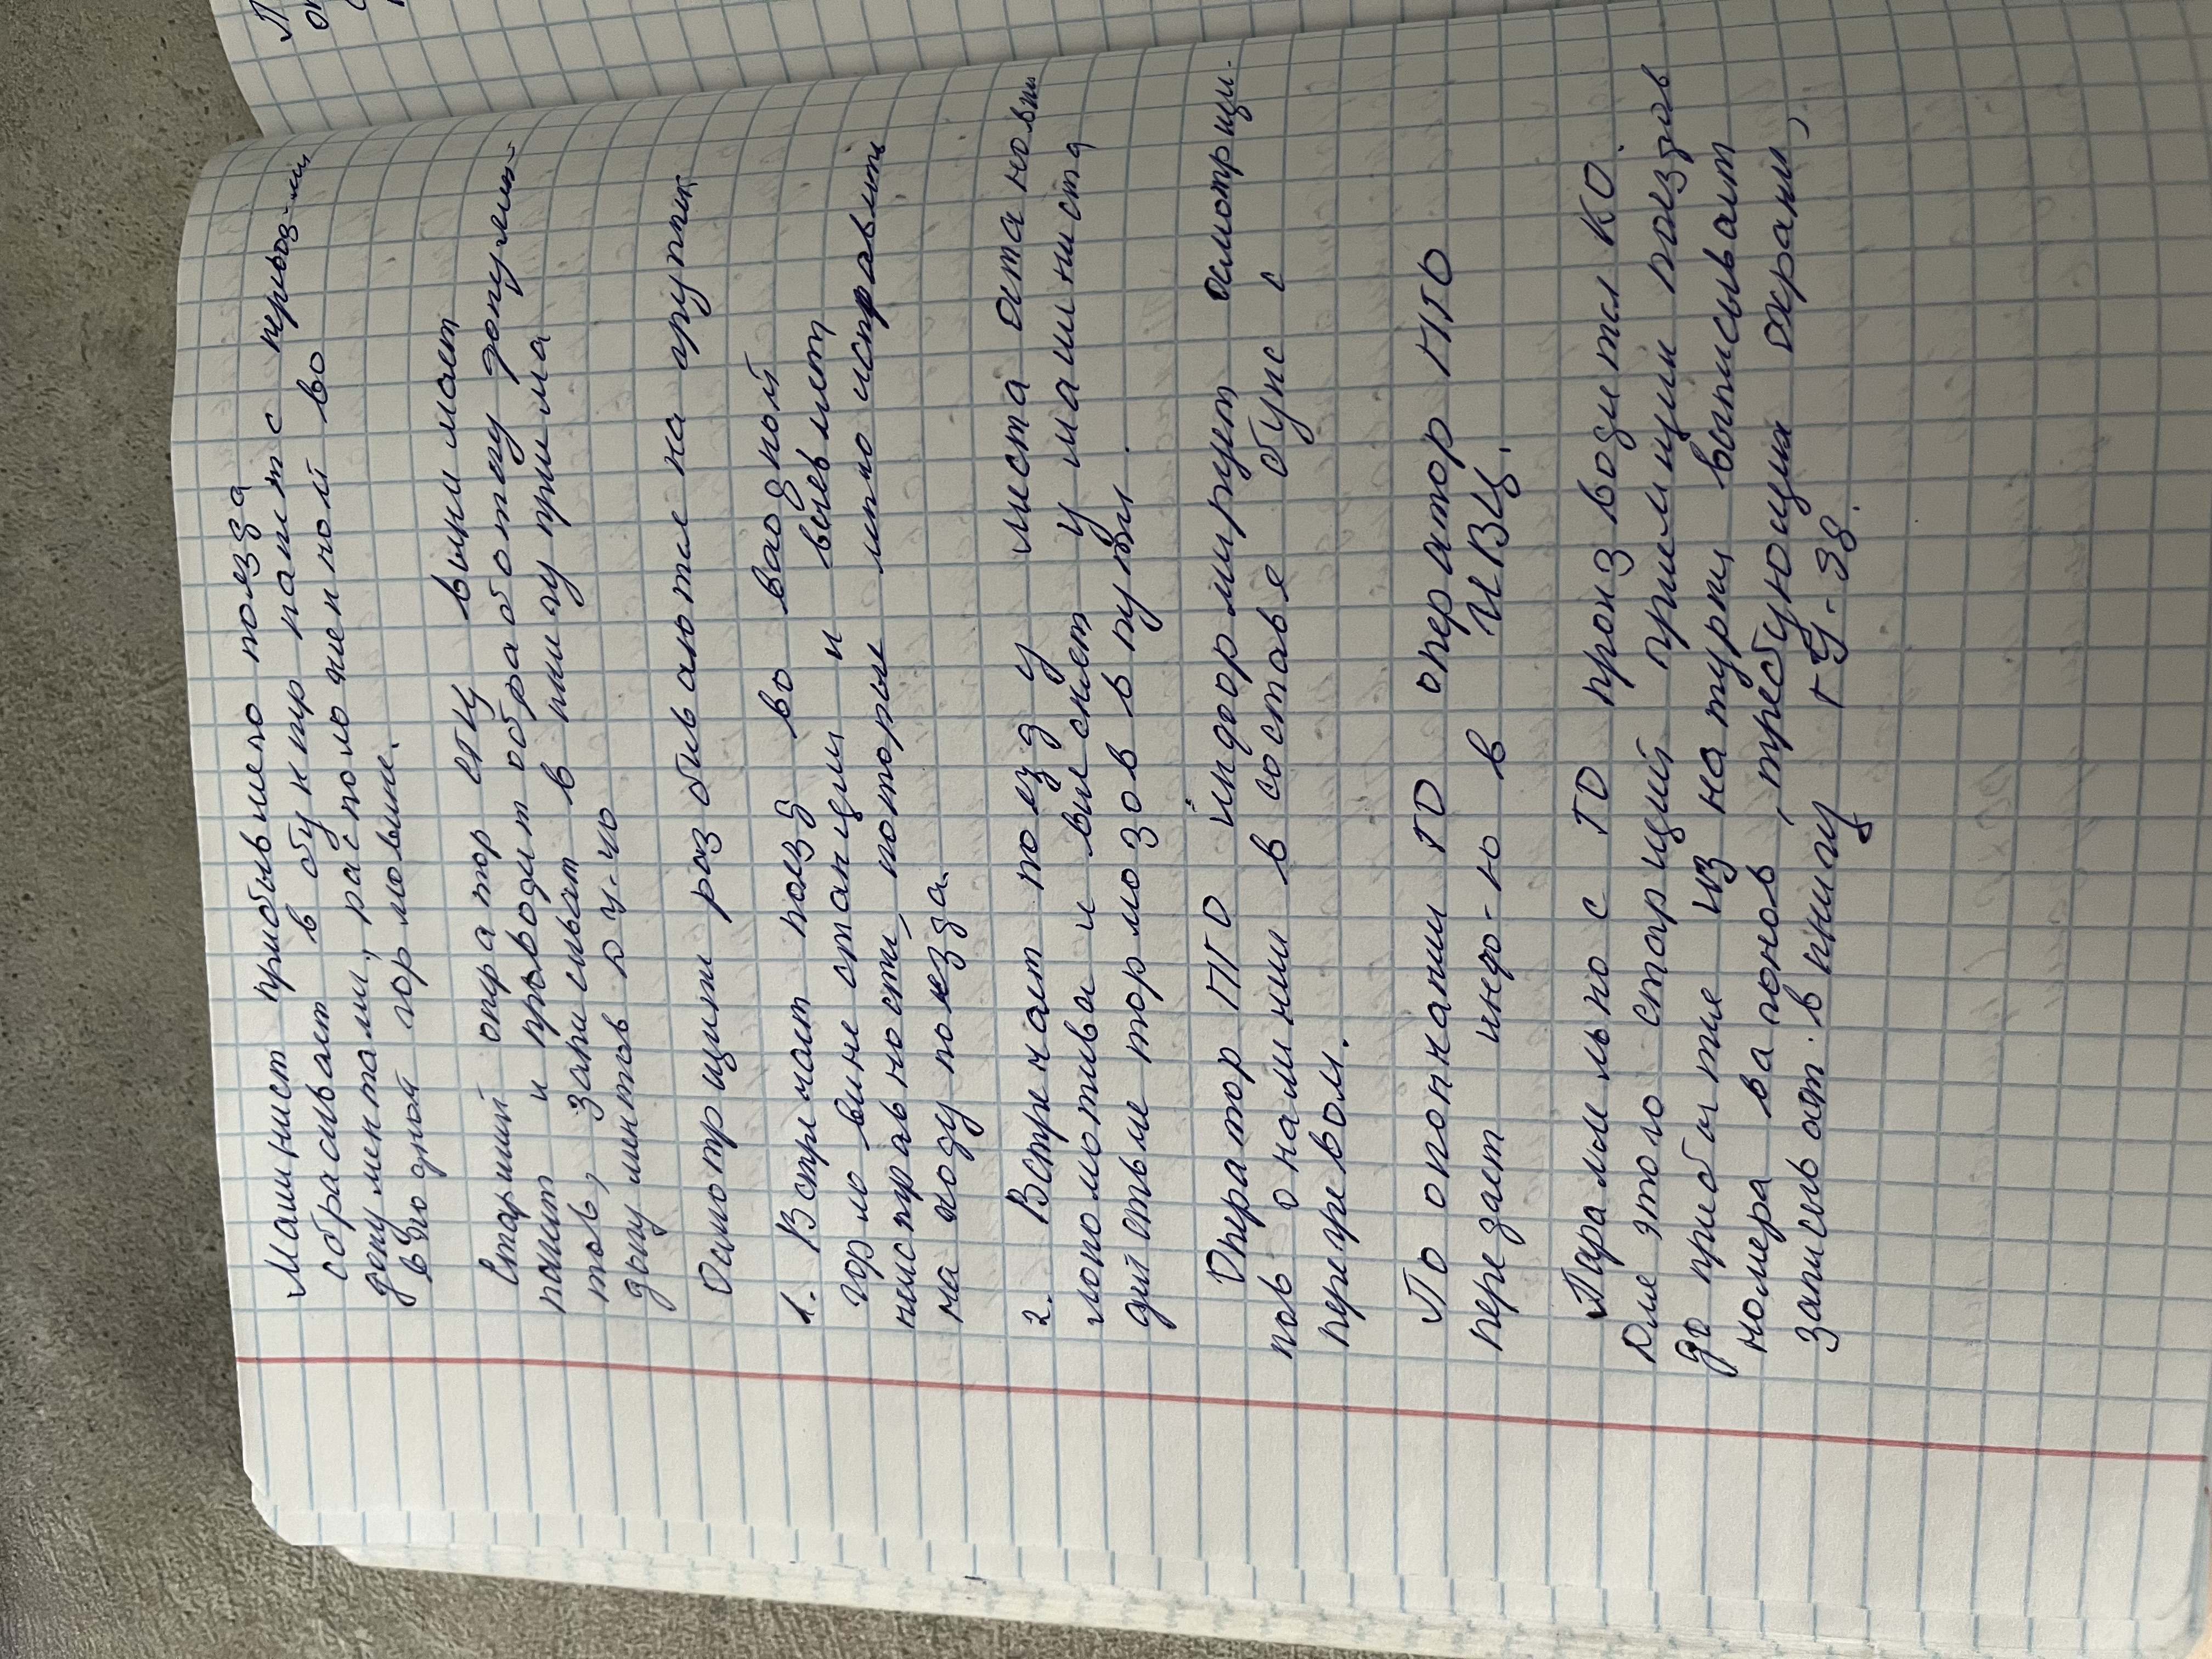 Машинист прибывшего поезда
сбрасывает в бункер пакет с перевоз-ми
документами, расположенной во
входной горловине.
Старший оператор СТЦ вынимает
пакет и проводит обработку докумен-
тов, записывает в книгу приема
документов ДУ-40
Осмотрщики разбиваются на группы
1. Встречает поезд во входной
горловине станции и выевляет
неисправности, которые легко исправить
на ходу поезда.
2. Встречает поезд у места остановки
локомотива и выесняет у машиниста
действие тормозов в пути.
Оператор ПТО информирует осмотрщи-
ков о наличии в составе букс с
перегревом.
По окончании ТО оператор ПТО
передает инфо-ю в ИВЦ.
Параллельно с ТО производится КО.
Для этого старший приемщик поездов
до прибытия из натурки выписывает
номера вагонов, требующих охраны,
запись ост. в книгу ГУ-98.